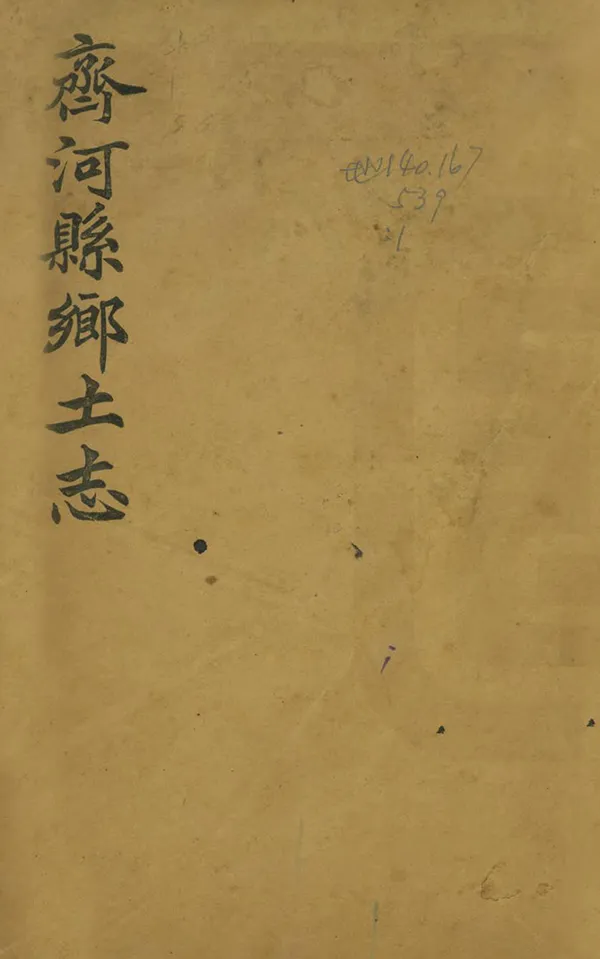 齊河縣鄉土志
140.167
539
:1